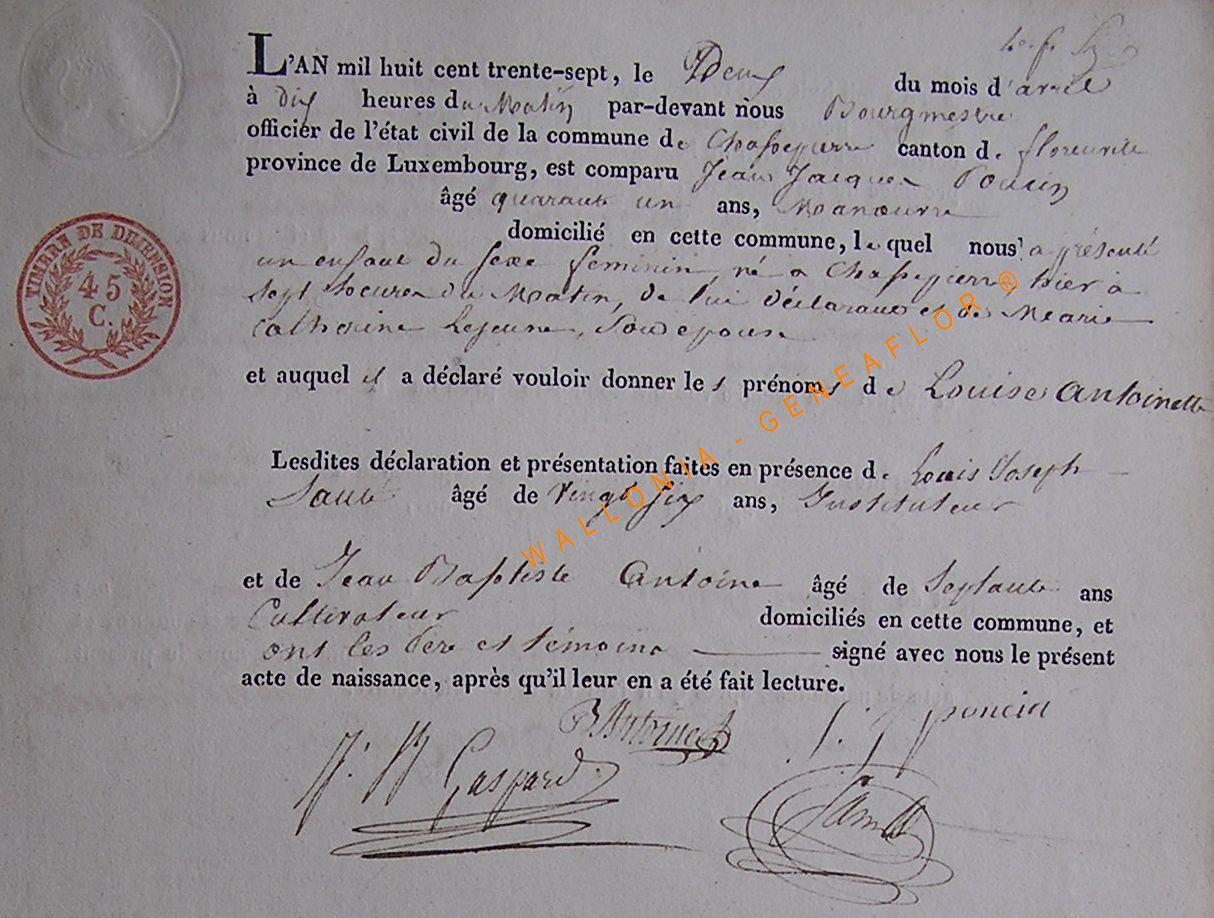 L'AN mil huit cent trente-sept, le Deux du mois d'avril
à dix heures du Matin par-devant nous Bourgmestre
officier de l'état civil de la commune de Chassepierre canton de florenville
province de Luxembourg, est comparu Jean Jacques Poncin
âgé quarante un ans, Manœuvre
domicilié en cette commune, le quel nous a présenté
un enfant du sexe feminin, né a Chassepierre, hier à
sept heures du Matin, de lui déclarant et de Marie
Catherine Lejeune, Son epouse
et auquel il a déclaré vouloir donner les prénoms de Louise Antoinette
Lesdites déclaration et présentation faites en présence de Louis Joseph
âgé de vingt six ans, Instituteur
et de Jean Baptiste Antoine âgé de Septante ans
Cultivateur domiciliés en cette commune, et
ont les Père et témoins signé avec nous le présent
acte de naissance, après qu'il leur en a été fait lecture.
B Antoine J. J poncin
J. B Gaspard
TIMBRE DE DIMENSION
45
C.
WALLONIA - GENEAFLOR ®